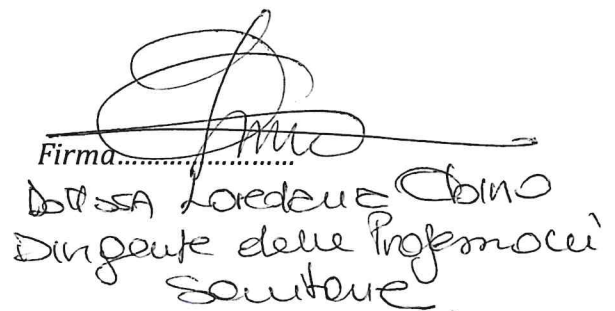 Firma........................
Dott.ssa Loredana
Dirigente delle Professioni
Sanitarie